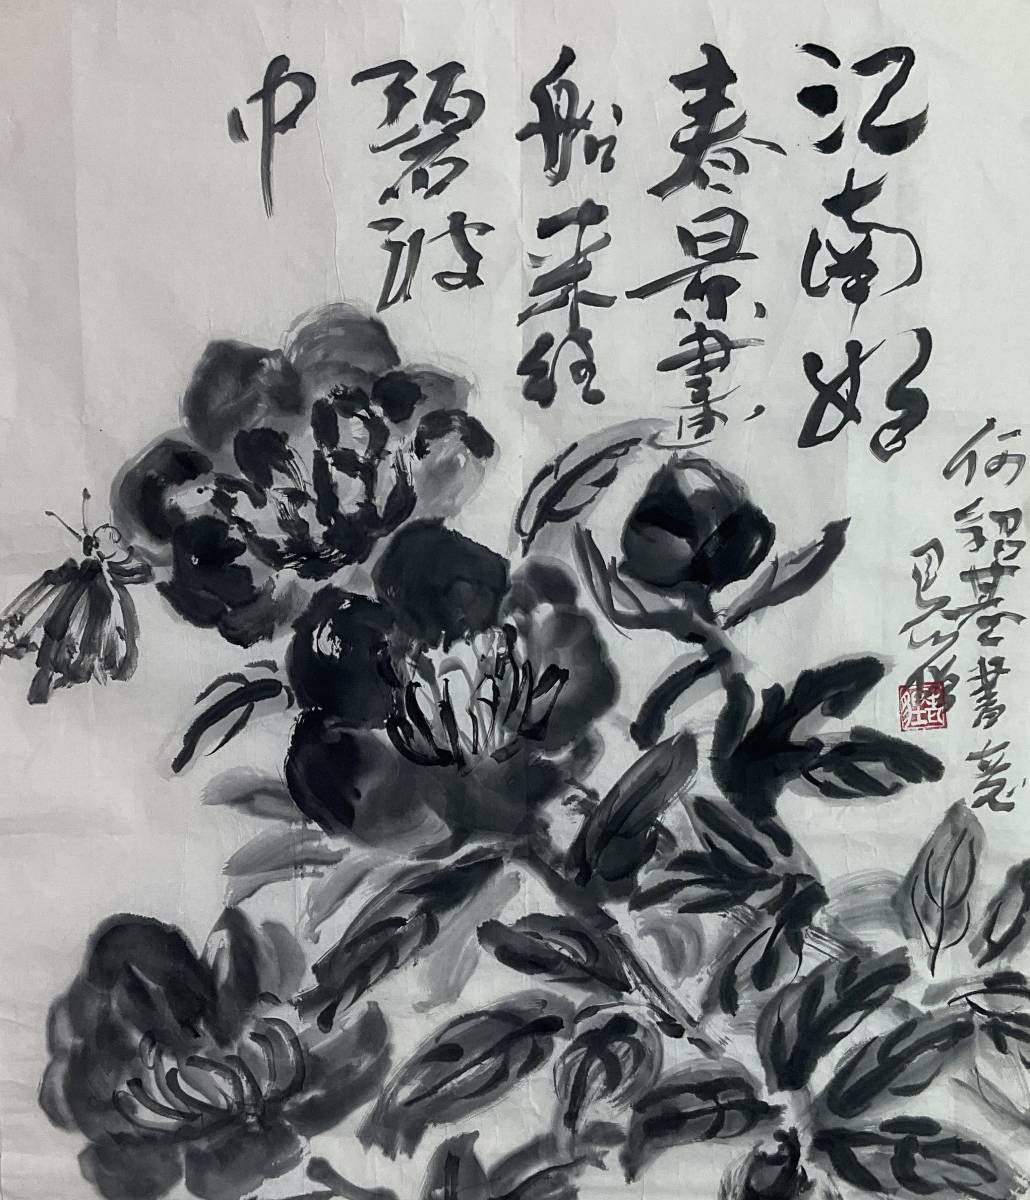 何紹基書意
江南好
春景畫
船来往
碧波
中